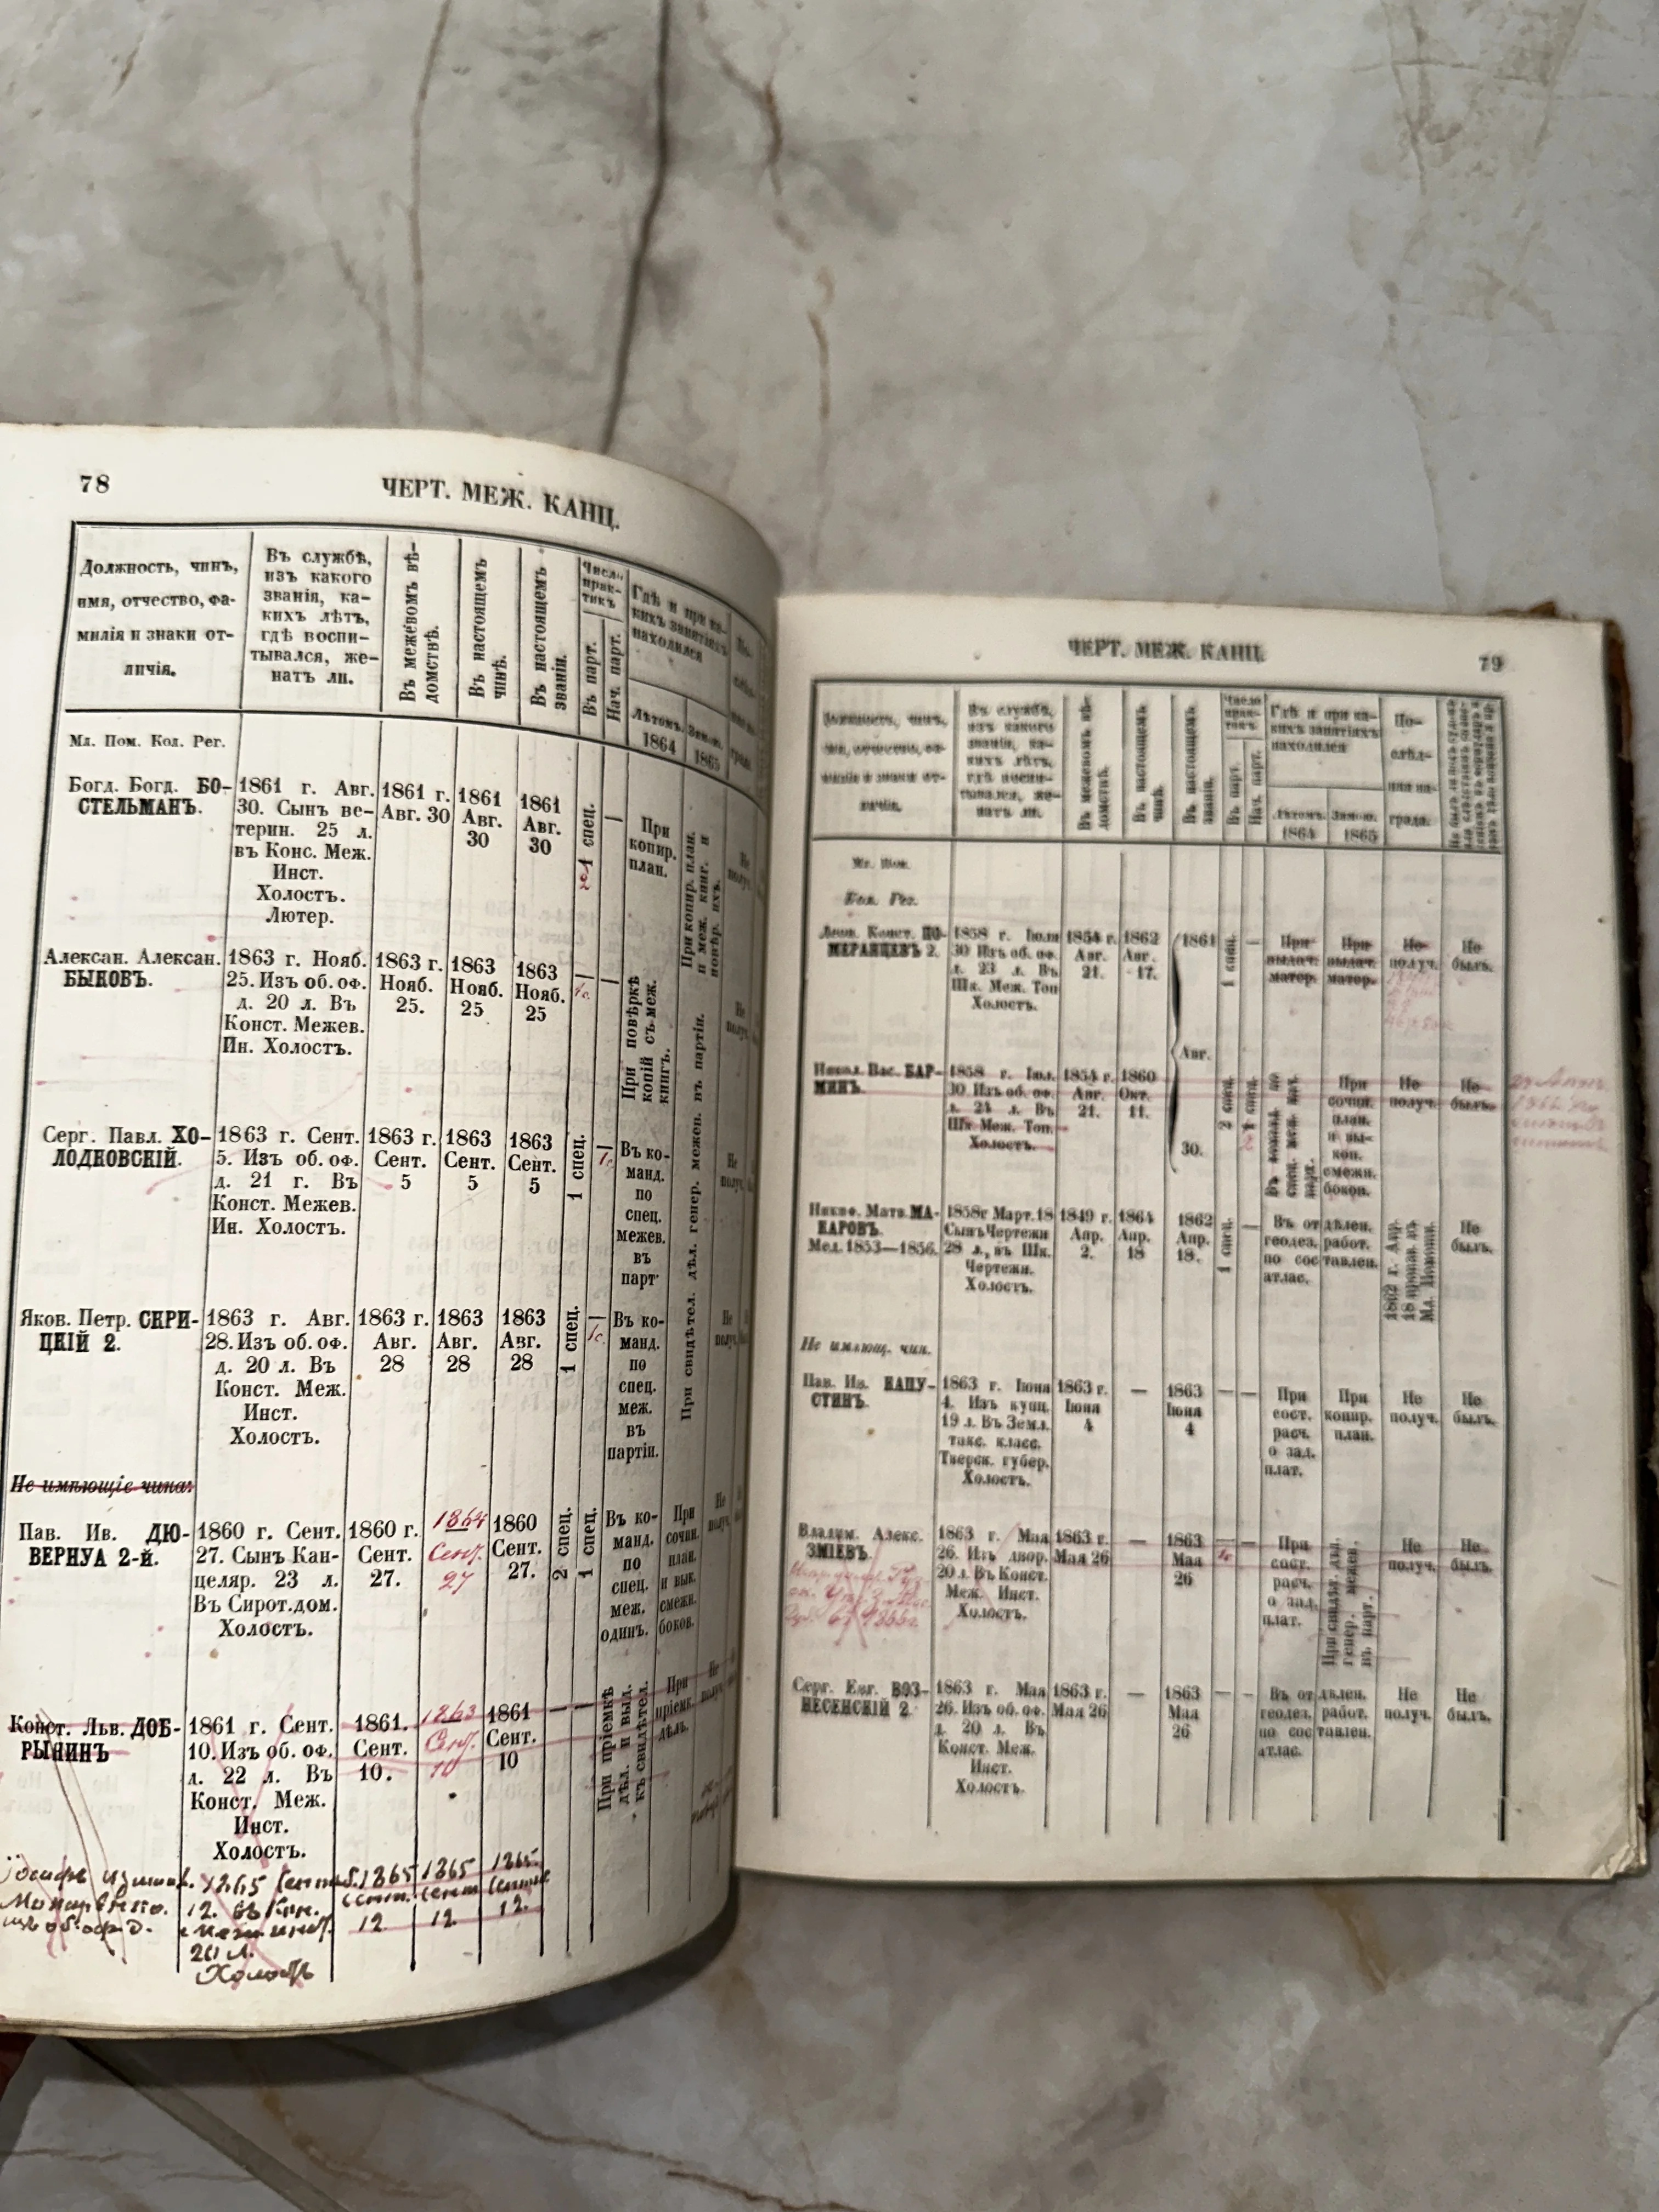 78
ЧЕРТ. МЕЖ. КАНЦ.
Должность, чинъ,
имя, отчество, фа-
милія и знаки от-
личія.
Въ службѣ,
изъ какого
званія, ка-
кихъ лѣтъ,
гдѣ воспи-
тывался, же-
натъ ли.
Въ межевомъ вѣ-
домствѣ.
Въ настоящемъ
чинѣ.
Въ настоящемъ
званіи.
Число
прак-
тикъ
Въ парт.
Нач. парт.
Гдѣ и при ка-
кихъ занятіяхъ
находился
Лѣтомъ.
1864
Зимою.
1865
Мл. Пом. Кол. Рег.
Богд. Богд. БО-
СТЕЛЬМАНЪ.
1861 г. Авг.
30. Сынъ ве-
терин. 25 л.
въ Конс. Меж.
Инст.
Холостъ.
Лютер.
1861 г.
Авг. 30
1861
Авг.
30
1861
Авг.
30
1 спец.
—
При
копир.
план.
При копир. план.
и меж. книг. и
повѣр. ихъ.
Не
получ.
Алексан. Алексан.
БЫКОВЪ.
1863 г. Нояб.
25. Изъ об. оф.
д. 20 л. Въ
Конст. Межев.
Ин. Холостъ.
1863 г.
Нояб.
25.
1863
Нояб.
25
1863
Нояб.
25
—
—
При повѣркѣ
копій съ меж.
книгъ.
При свидѣтел. дѣл. генер. межев. въ партіи.
Не
получ.
Серг. Павл. ХО-
ЛОДКОВСКІЙ.
1863 г. Сент.
5. Изъ об. оф.
д. 21 г. Въ
Конст. Межев.
Ин. Холостъ.
1863 г.
Сент.
5
1863
Сент.
5
1863
Сент.
5
1 спец.
—
Въ ко-
манд.
по
спец.
межев.
въ
парт.
Не
получ.
Яков. Петр. СКРИ-
ЦКІЙ 2.
1863 г. Авг.
28. Изъ об. оф.
д. 20 л. Въ
Конст. Меж.
Инст.
Холостъ.
1863 г.
Авг.
28
1863
Авг.
28
1863
Авг.
28
1 спец.
—
Въ ко-
манд.
по
спец.
меж.
въ
партіи.
Не
получ.
Не имѣющіе чина:
Пав. Ив. ДЮ-
ВЕРНУА 2-й.
1860 г. Сент.
27. Сынъ Кан-
целяр. 23 л.
Въ Сирот. дом.
Холостъ.
1860 г.
Сент.
27.
1864
Сент.
27
1860
Сент.
27.
2 спец.
1 спец.
Въ ко-
манд.
по
спец.
меж.
одинъ.
При
сочин.
план.
и вык.
смежн.
боков.
Не
получ.
Конст. Льв. ДОБ-
РЫНИНЪ
1861 г. Сент.
10. Изъ об. оф.
д. 22 л. Въ
Конст. Меж.
Инст.
Холостъ.
1861.
Сент.
10.
1863
Сент.
10
1861
Сент.
10
—
—
При пріемкѣ
дѣл. и выд.
къ свидѣтел.
При
пріемк.
дѣлъ.
Не
получ.
изъ об. оф. д.
1865
12.
20 л.
Холостъ
1865
12
1865
12
1865
12.
ЧЕРТ. МЕЖ. КАНЦ.
79
Должность, чинъ,
имя, отчество, фа-
милія и знаки от-
личія.
Въ службѣ,
изъ какого
званія, ка-
кихъ лѣтъ,
гдѣ воспи-
тывался, же-
натъ ли.
Въ межевомъ вѣ-
домствѣ.
Въ настоящемъ
чинѣ.
Въ настоящемъ
званіи.
Число
прак-
тикъ
Въ парт.
Нач. парт.
Гдѣ и при ка-
кихъ занятіяхъ
находился
Лѣтомъ.
1864
Зимою.
1865
По-
слѣд-
няя на-
града.
Мл. Пом.
Кол. Рег.
Леон. Конст. ПО-
МЕРАНЦЕВЪ 2.
1858 г. Іюля
30 Изъ об. оф.
д. 23 л. Въ
Шк. Меж. Топ
Холостъ.
1854 г.
Авг.
21.
1862
Авг.
17.
1861
Авг.
30.
1 спец.
—
При
выдач.
матер.
При
выдач.
матер.
Не
получ.
Не
былъ.
Никол. Вас. БАР-
МИНЪ.
1858 г. Іюл.
30 Изъ об. оф.
д. 24 л. Въ
Шк Меж. Топ.
Холостъ.
1854 г.
Авг.
21.
1860
Окт.
11.
2 спец.
1 спец.
При
сочин.
план.
и вы-
коп.
смежн.
боков.
Не
получ.
Не
былъ.
Никиф. Матв. МА-
КАРОВЪ.
Мед. 1853—1856.
1858г Март. 18
Сынъ Чертежн
28 л., въ Шк.
Чертежн.
Холостъ.
1849 г.
Апр.
2.
1864
Апр.
18
1862
Апр.
18.
1 спец.
—
Въ отдѣлен.
геодез. работ.
по составлен.
атлас.
1862 г. Апр.
18 произв. въ
Мл. Помощн.
Не
былъ.
Не имѣющ. чин.
Пав. Ив. КАПУ-
СТИНЪ.
1863 г. Іюня
4. Изъ купц.
19 л. Въ Земл.
такс. класс.
Тверск. губер.
Холостъ.
1863 г.
Іюня
4
—
1863
Іюня
4
—
—
При
сост.
расч.
о зад.
плат.
При
копир.
план.
Не
получ.
Не
былъ.
Владим. Алекс.
ЗМІЕВЪ.
1863 г. Мая
26. Изъ двор.
20 л. Въ Конст.
Меж. Инст.
Холостъ.
1863 г.
Мая 26
—
1863
Мая
26
—
—
При
сост.
расч.
о зад.
плат.
При свидѣт. дѣл.
генер. межев.
въ парт.
Не
получ.
Не
былъ.
Серг. Евг. ВОЗ-
НЕСЕНСКІЙ 2.
1863 г. Мая
26. Изъ об. оф.
д. 20 л. Въ
Конст. Меж.
Инст.
Холостъ.
1863 г.
Мая 26
—
1863
Мая
26
—
—
Въ отдѣлен.
геодез. работ.
по составлен.
атлас.
Не
получ.
Не
былъ.